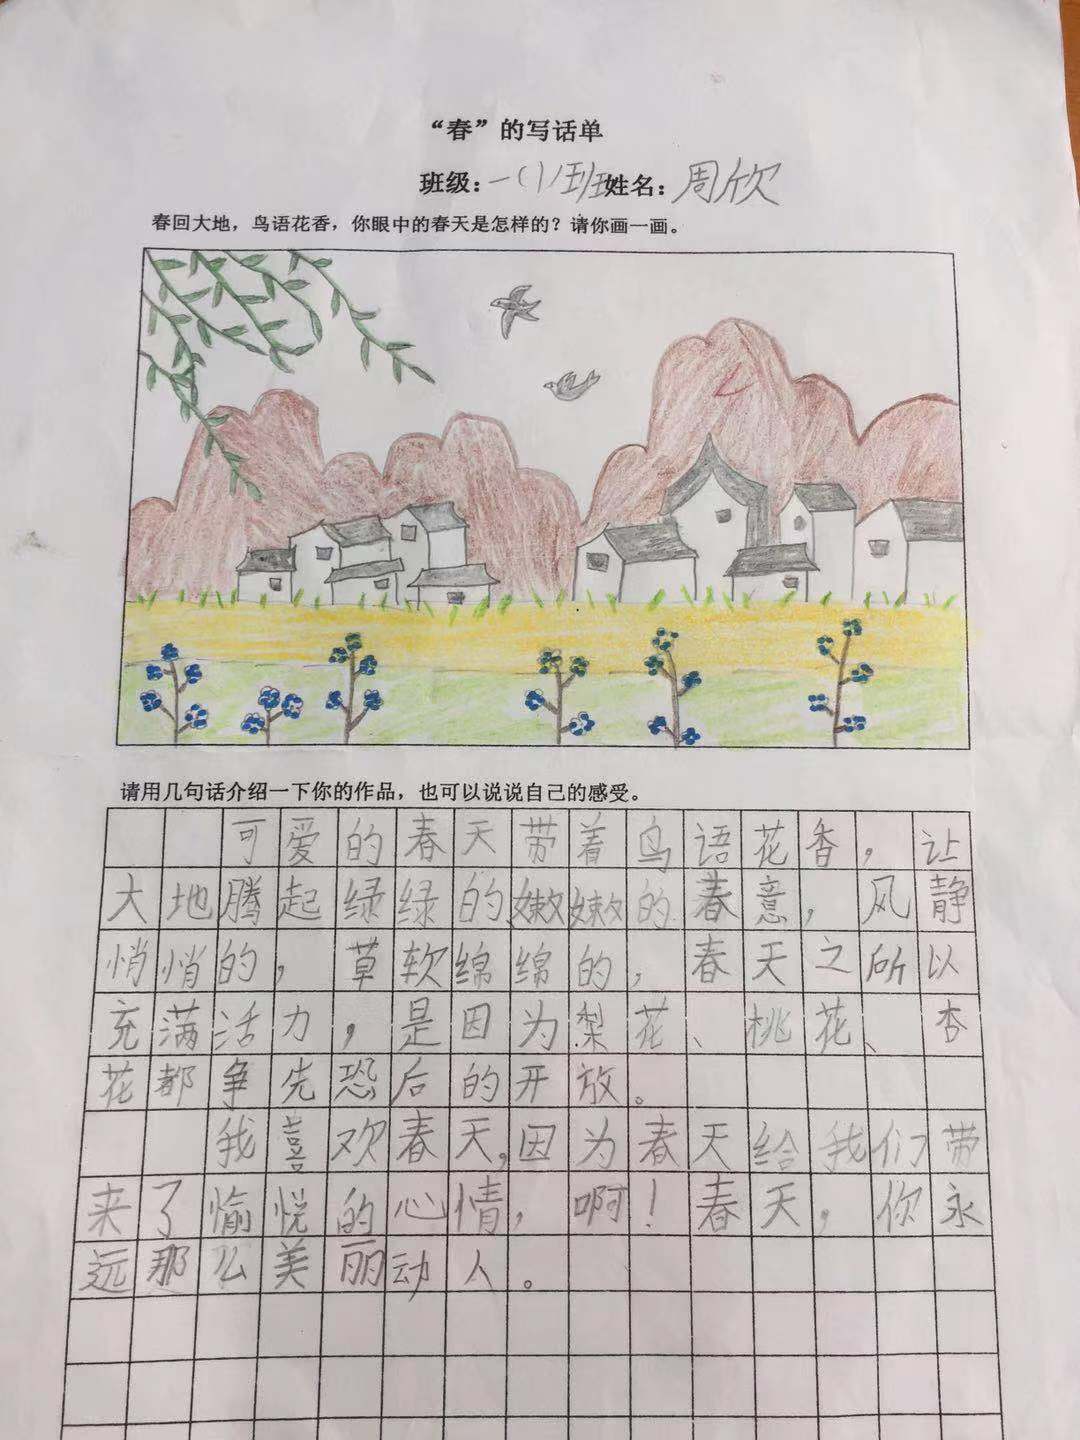 “春”的写话单
班级：一(1)班 姓名：周欣
春回大地，鸟语花香，你眼中的春天是怎样的？请你画一画。
请用几句话介绍一下你的作品，也可以说说自己的感受。
可爱的春天带着鸟语花香，让
大地腾起绿绿的嫩嫩的春意，风静
悄悄的，草软绵绵的，春天之所以
充满活力，是因为梨花、桃花、杏
花都争先恐后的开放。
我喜欢春天,因为春天给我们带
来了愉悦的心情，啊！春天，你永
远那么美丽动人。